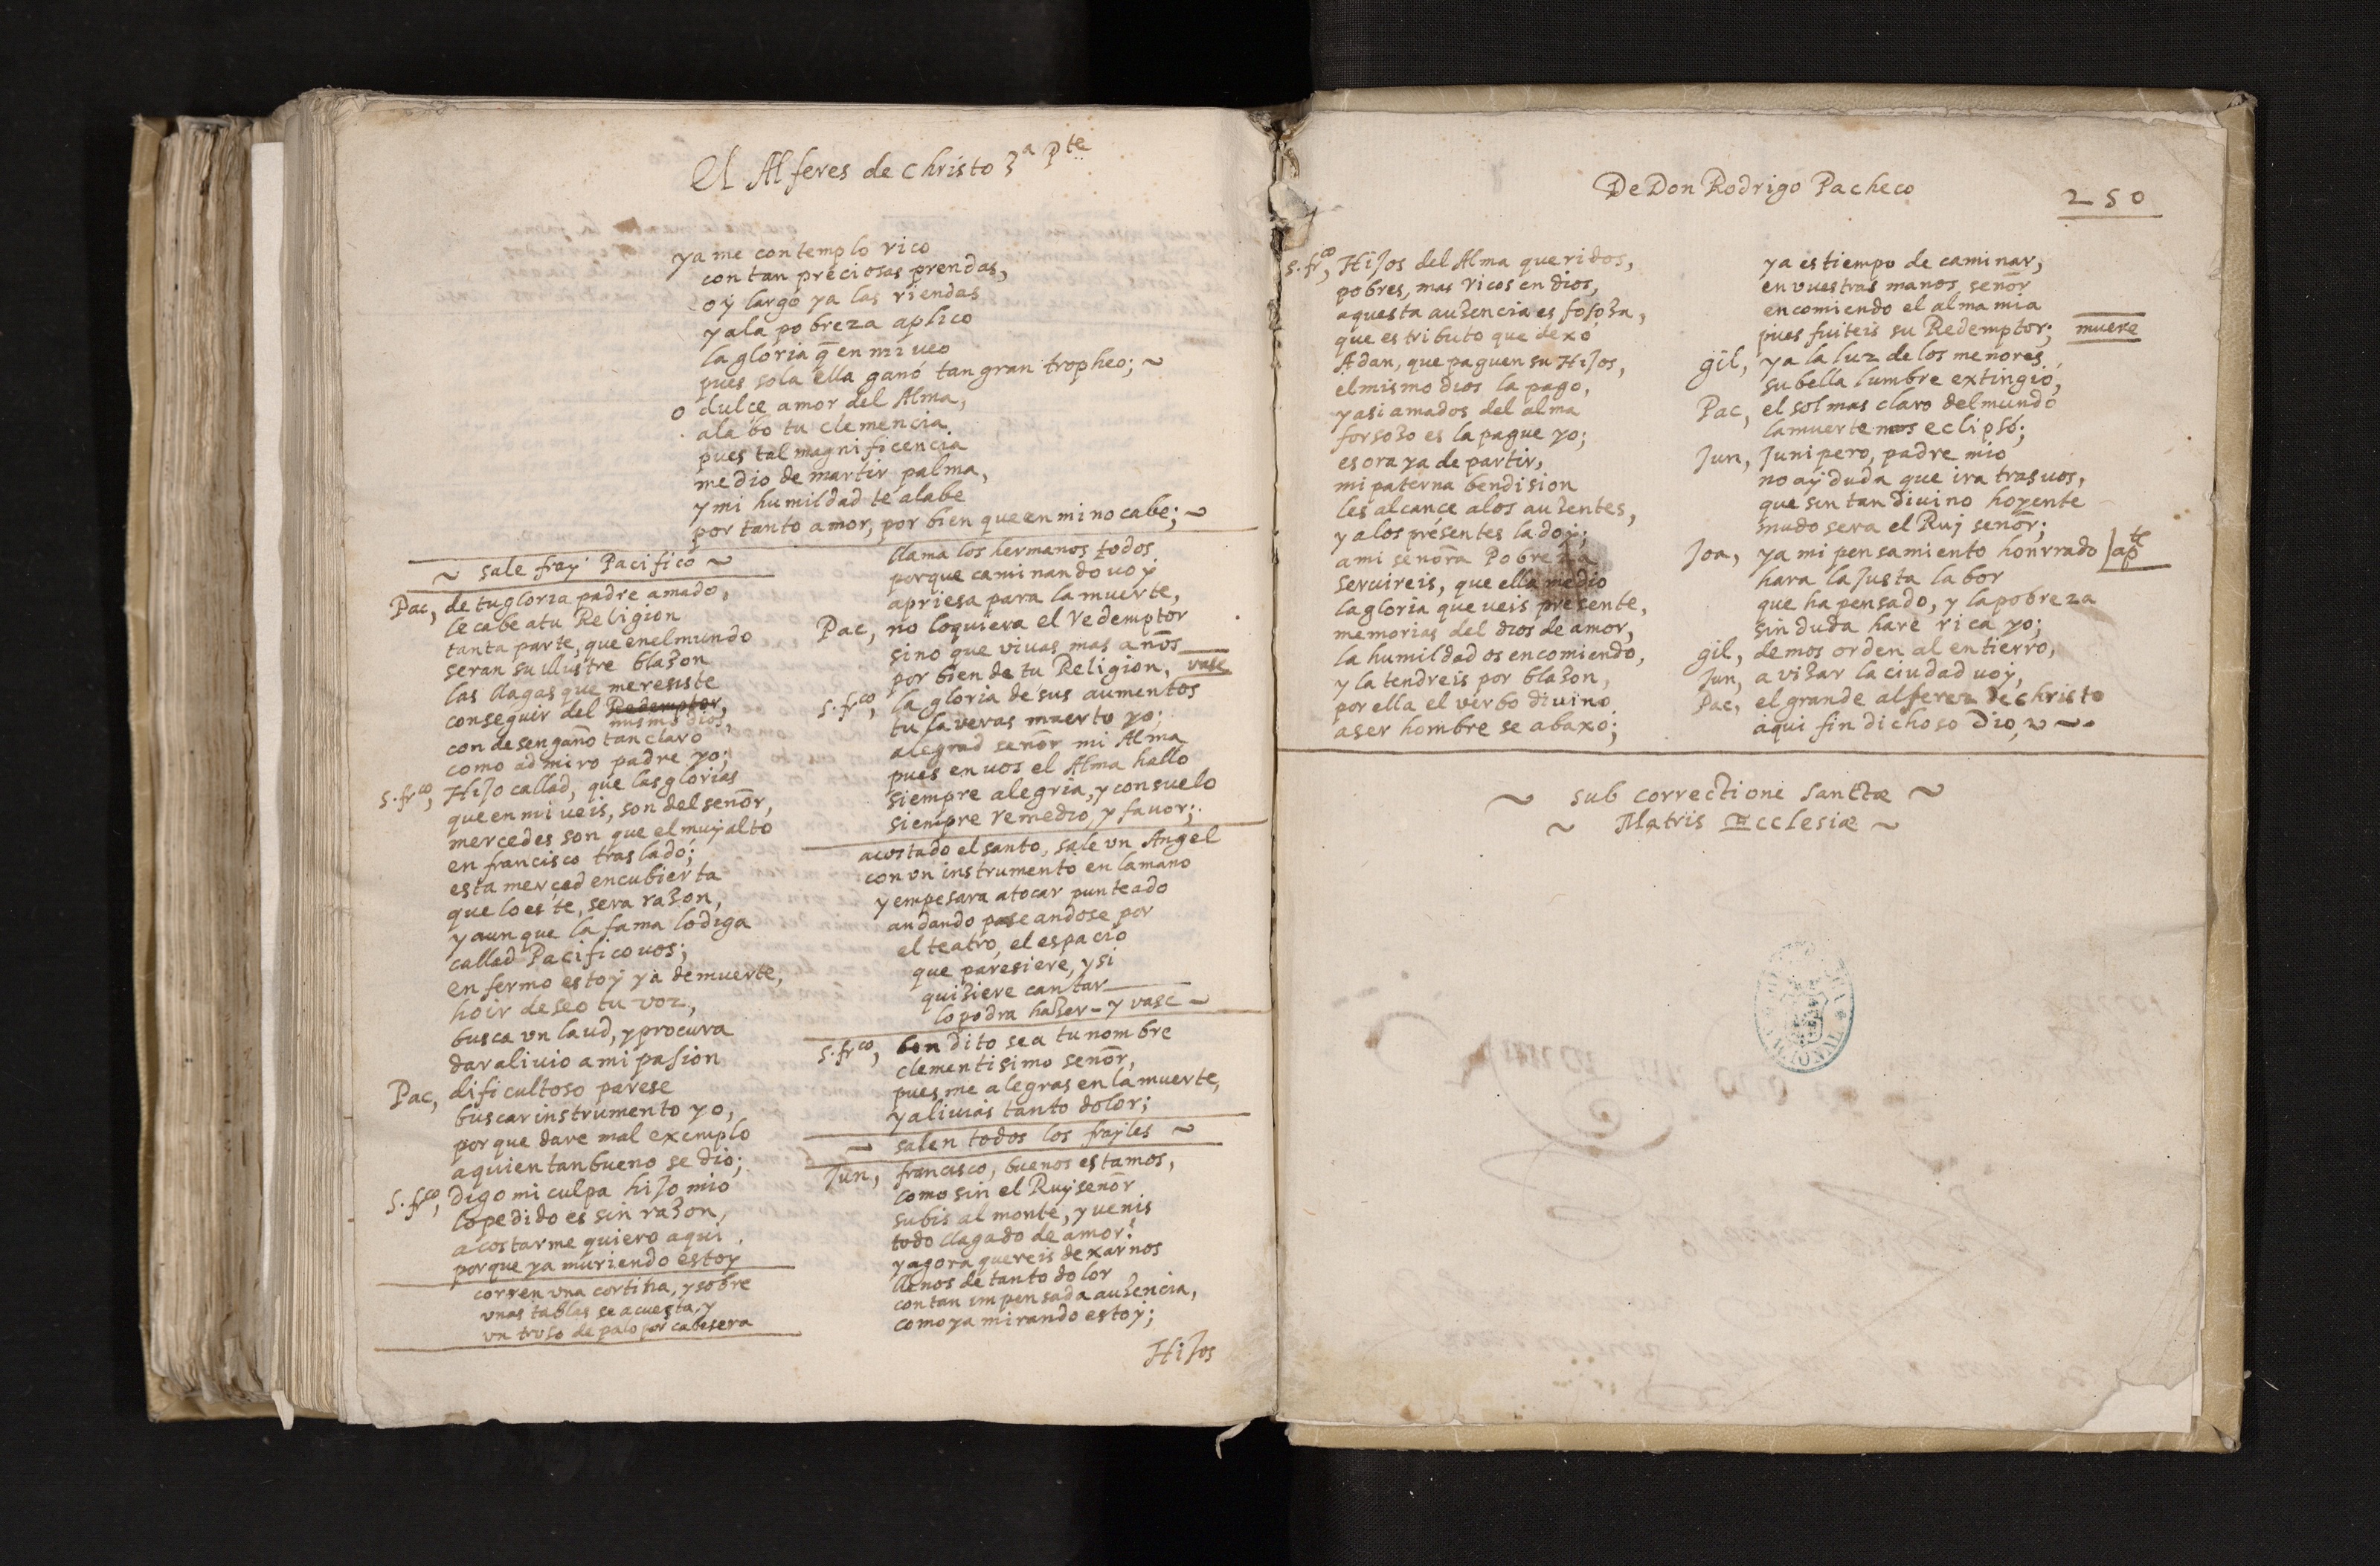 El Alferes de Christo 3ª Pte
ya me contemplo rico
con tan preciosas prendas,
oÿ largo ya las riendas
y ala pobreza aplico
la gloria q̃ en mi veo
pues sola ella ganó tan gran tropheo; ~
o dulce amor del Alma,
alabo tu clemencia
pues tal magnificencia
me dio de martir palma,
y mi humildad te alabe
por tanto amor, por bien que en mi no cabe; ~
~ sale fraÿ Pacifico ~
Pac, de tu gloria padre amado,
le cabe a tu Religion
tanta parte, que en el mundo
seran su illustre blason
las llagas que meresiste
conseguir del Redemptor,
mismo dios,
con desengaño tan claro
como admiro padre yo;
s. frco, Hijo callad, que las glorias
que en mi veis, son del señor,
mercedes son que el muÿ alto
en francisco traslado;
esta merced encubierta
que lo esté, sera rason,
y aunque la fama lo diga
callad Pacifico vos;
enfermo estoÿ ya de muerte,
hoir deseo tu voz,
busca vn laud, y procura
dar alivio a mi pasion
Pac, dificultoso parese
buscar instrumento yo,
porque dare mal exemplo
a quien tan bueno se dio;
s. frco, digo mi culpa hijo mio
lo pedido es sin rason,
acostarme quiero aqui
porque ya muriendo estoy
corren vna cortina, y sobre
vnas tablas se acuesta, y
vn troso de palo por cabesera
llama los hermanos todos
porque caminando voÿ
apriesa para la muerte,
Pac, no lo quiera el redemptor
sino que vivas mas años
por bien de tu Religion, vase
s. frco, la gloria de sus aumentos
tu la veras muerto yo;
alegrad señor mi Alma
pues en vos el Alma hallo
siempre alegria, y consuelo
siempre remedio, y favor;
acostado el santo, sale vn Angel
con vn instrumento en la mano
y empesara a tocar punteado
andando paseandose por
el teatro, el espacio
que paresiere, y si
quisiere cantar
lo podra haser - y vase ~
s. frco, bendito sea tu nombre
clementisimo señor,
pues me alegras en la muerte,
y alivias tanto dolor;
~ salen todos los fraÿles ~
Jun, francisco, buenos estamos,
como sin el Ruÿseñor
subis al monte, y venis
todo llagado de amor?
y agora quereis dexarnos
llenos de tanto dolor
con tan impensada ausencia,
como ya mirando estoÿ;
Hijos
De Don Rodrigo Pacheco
250
s. frco, Hijos del Alma queridos,
pobres, mas ricos en dios,
aquesta ausencia es fosossa,
que es tributo que dexo
Adan, que paguen su Hijos,
el mismo dios la pago,
y asi amados del alma
forsoso es la pague yo;
es ora ya de partir,
mi paterna bendision
les alcance a los ausentes,
y a los presentes la doÿ;
a mi señora Pobreza
serviréis, que ella me dio
la gloria que veis presente,
memorias del dios de amor,
la humildad os encomiendo,
y la tendreis por blason,
por ella el verbo divino
a ser hombre se abaxo;
ya es tiempo de caminar,
en vuestras manos, señor
encomiendo el alma mia
pues fuiteis su Redemptor; muere
gil, ya la luz de los menores
su bella lumbre extingió,
Pac, el sol mas claro del mundo
la muerte nos eclipsó;
Jun, Junipero, padre mio
no aÿ duda que ira tras vos,
que sin tan divino hoyente
mudo sera el Ruÿ señor;
Joa, ya mi pensamiento honrrado | apte
hara la justa labor
que ha pensado, y la pobreza
sin duda hare rica yo;
gil, demos orden al entierro,
Jun, a visar la ciudad voÿ,
Pac, el grande alferez de christo
aqui fin dichoso dio, ~
~ sub correctione sanctæ ~
~ Matris Ecclesiæ ~